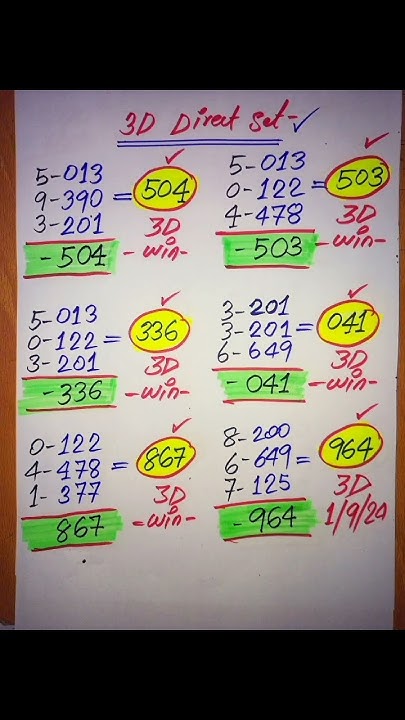 3D Direct Set-✓
5-013
9-390 = 504
3-201 3D
-504 -win-
5-013
0-122 = 503
4-478 3D
-503 -win-
5-013
0-122 = 336
3-201 3D
-336 -win-
3-201
3-201 = 041
6-649 3D
-041 -win-
0-122
4-478 = 867
1-377 3D
867 -win-
8-200
6-649 = 964
7-125 3D
-964 1/9/24